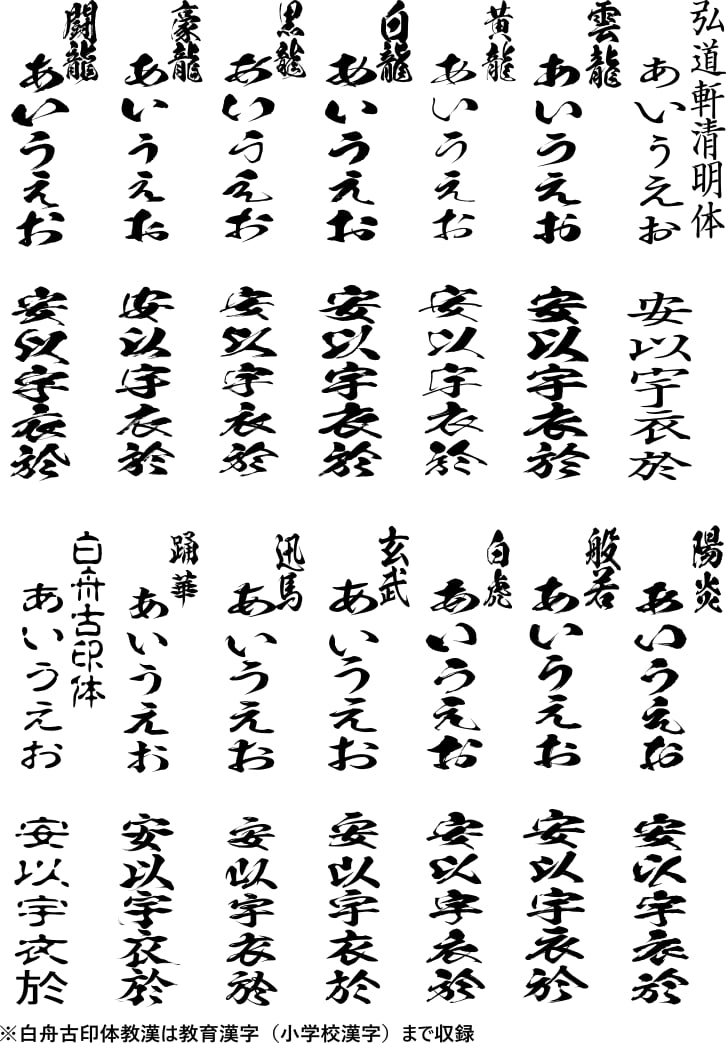 弘道軒清明体
あいうえお
安以宇衣於
雲龍
あいうえお
安以宇衣於
黄龍
あいうえお
安以宇衣於
白龍
あいうえお
安以宇衣於
黒龍
あいうえお
安以宇衣於
豪龍
あいうえお
安以宇衣於
闘龍
あいうえお
安以宇衣於
陽炎
あいうえお
安以宇衣於
般若
あいうえお
安以宇衣於
白虎
あいうえお
安以宇衣於
玄武
あいうえお
安以宇衣於
迅馬
あいうえお
安以宇衣於
踊華
あいうえお
安以宇衣於
白舟古印体
あいうえお
安以宇衣於
※白舟古印体教漢は教育漢字（小学校漢字）まで収録